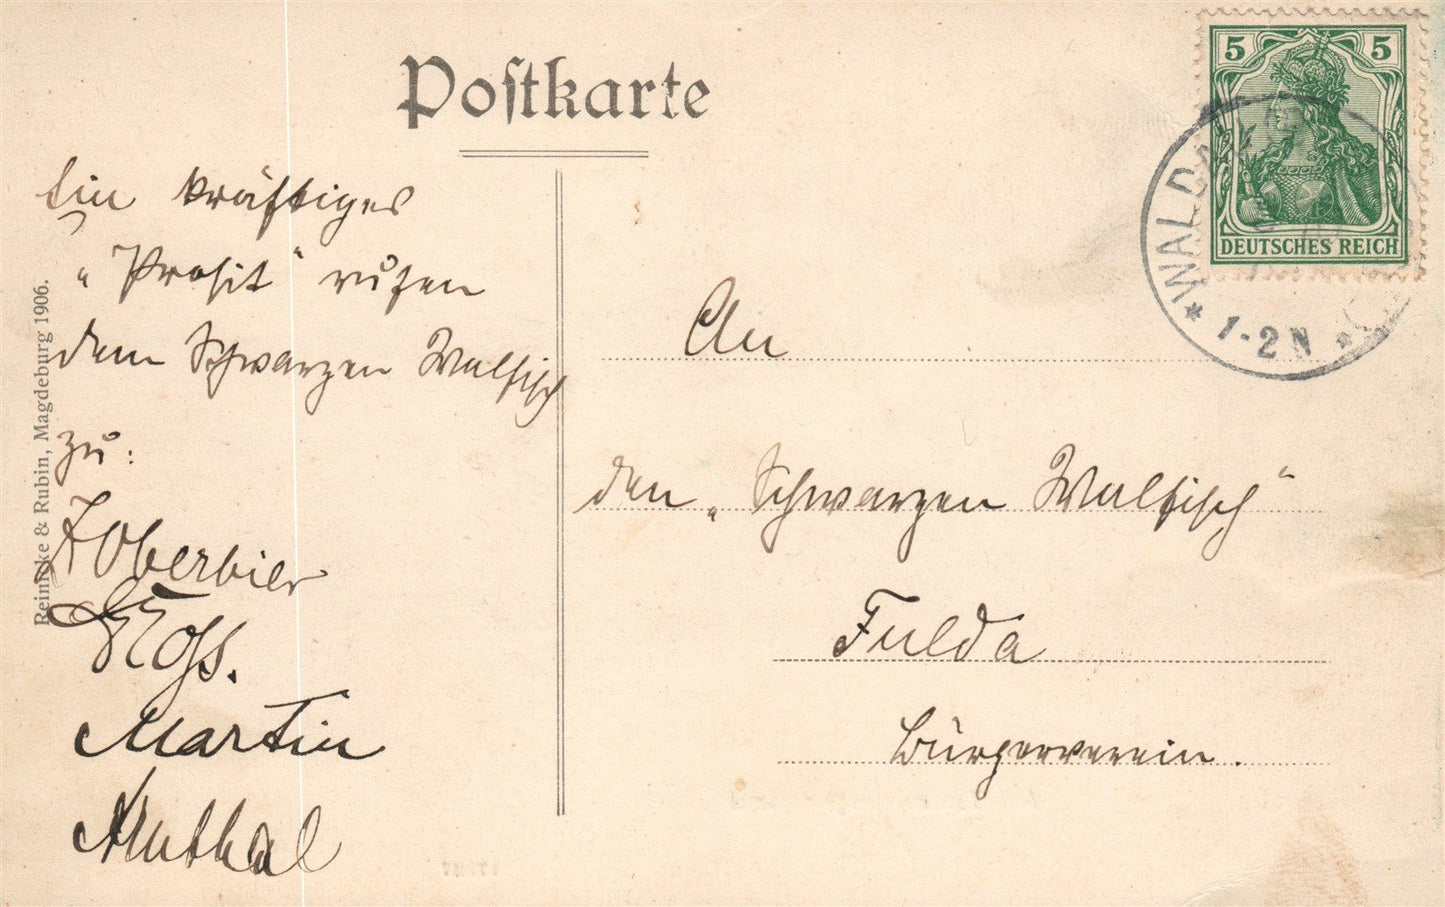 Postkarte
Ein kräftiges
„Prosit“ rufen
dem Schwarzen Walfisch
zu:
Oberbier
Martin
An
den „Schwarzen Walfisch“
Fulda
Bürgerverein.
Reinicke & Rubin, Magdeburg 1906.
5 5
DEUTSCHES REICH
* 1-2 N *